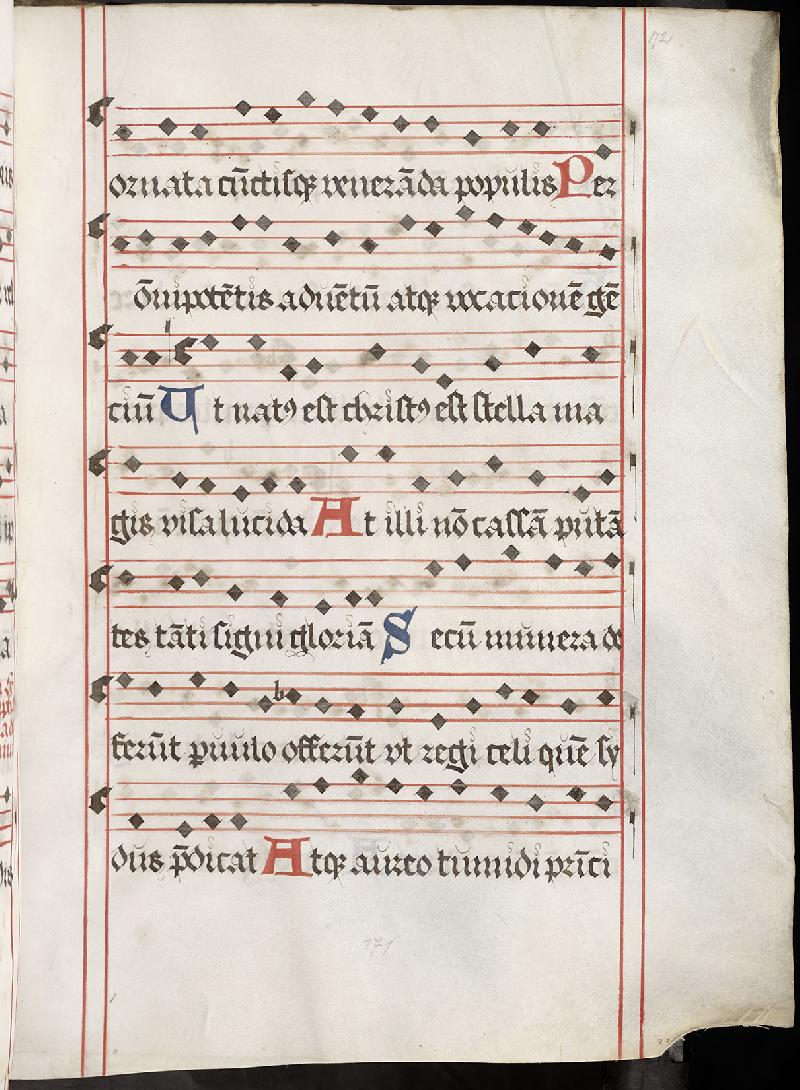 172
ornata cūctisqȝ venerāda populis Per
ōnipotētis aduētū atqȝ vocationē gē
ciū Ut natꝰ est christꝰ est stella ma
gis visa lucida At illi nō cassā putā
tes tāti signi gloriā Secū munera de
ferūt puulo offerūt vt regi celi quē sy
dus p̄dicat Atqȝ aureo tumidi prīci
171